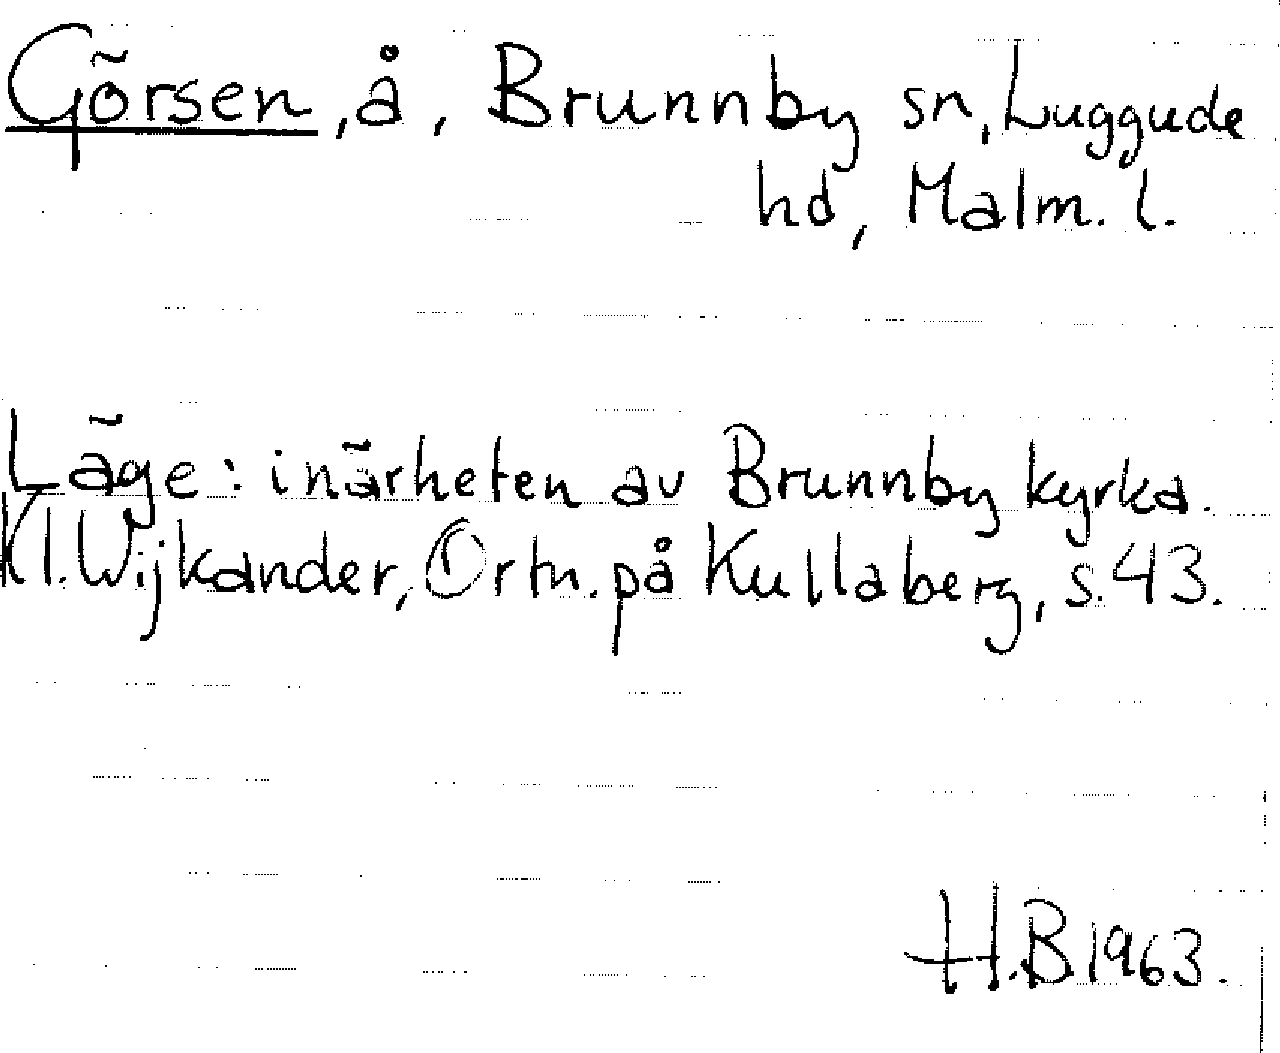 Görsen, å, Brunnby sn, Luggude
hd, Malm. l.
Läge: i närheten av Brunnby kyrka.
Kl. Wijkander, Ortn. på Kullaberg, s. 43.
H.B 1963.